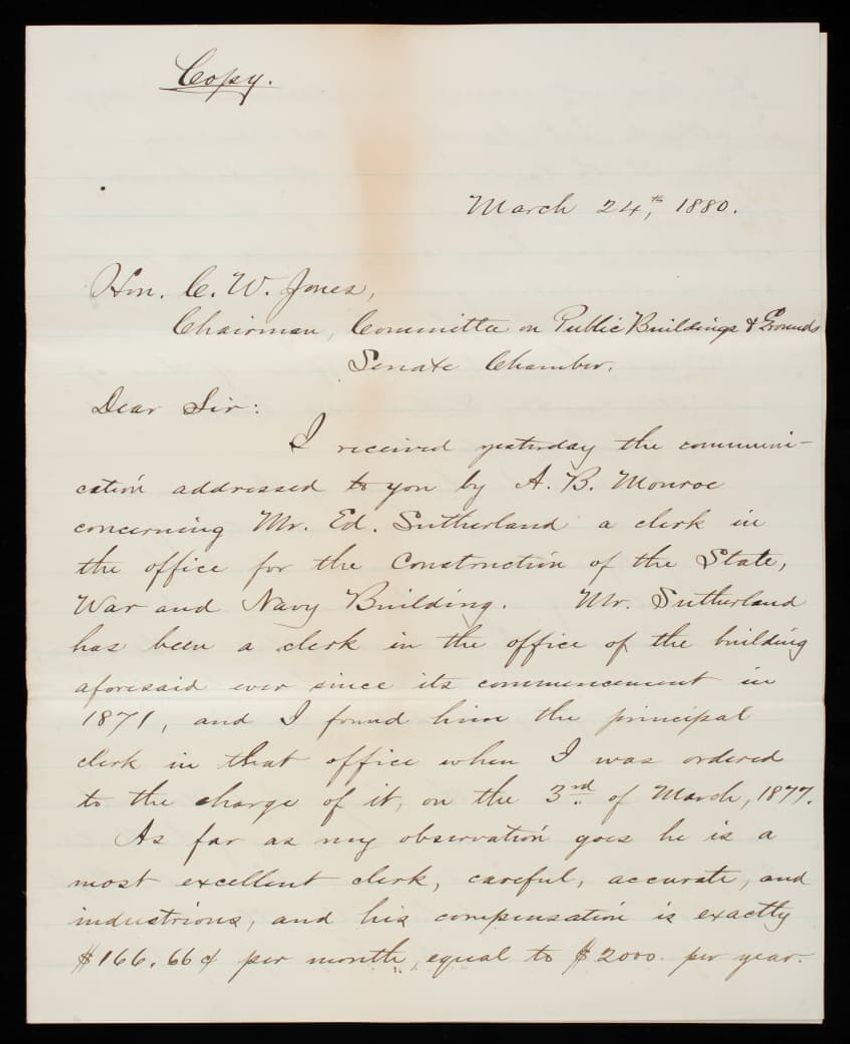 Copy.
March 24,th 1880.
Hon. C. W. Jones,
Chairman, Committee on Public Buildings & Grounds
Senate Chamber.
Dear Sir:
I received yesterday the communi-
cation addressed to you by A. B. Monroe
concerning Mr. Ed. Sutherland a clerk in
the office for the Construction of the State,
War and Navy Building. Mr. Sutherland
has been a clerk in the office of the building
aforesaid ever since its commencement in
1871, and I found him the principal
clerk in that office when I was ordered
to the charge of it, on the 3rd of March, 1877.
As far as my observation goes he is a
most excellent clerk, careful, accurate, and
industrious, and his compensation is exactly
$166.66¢ per month, equal to $2000. per year.